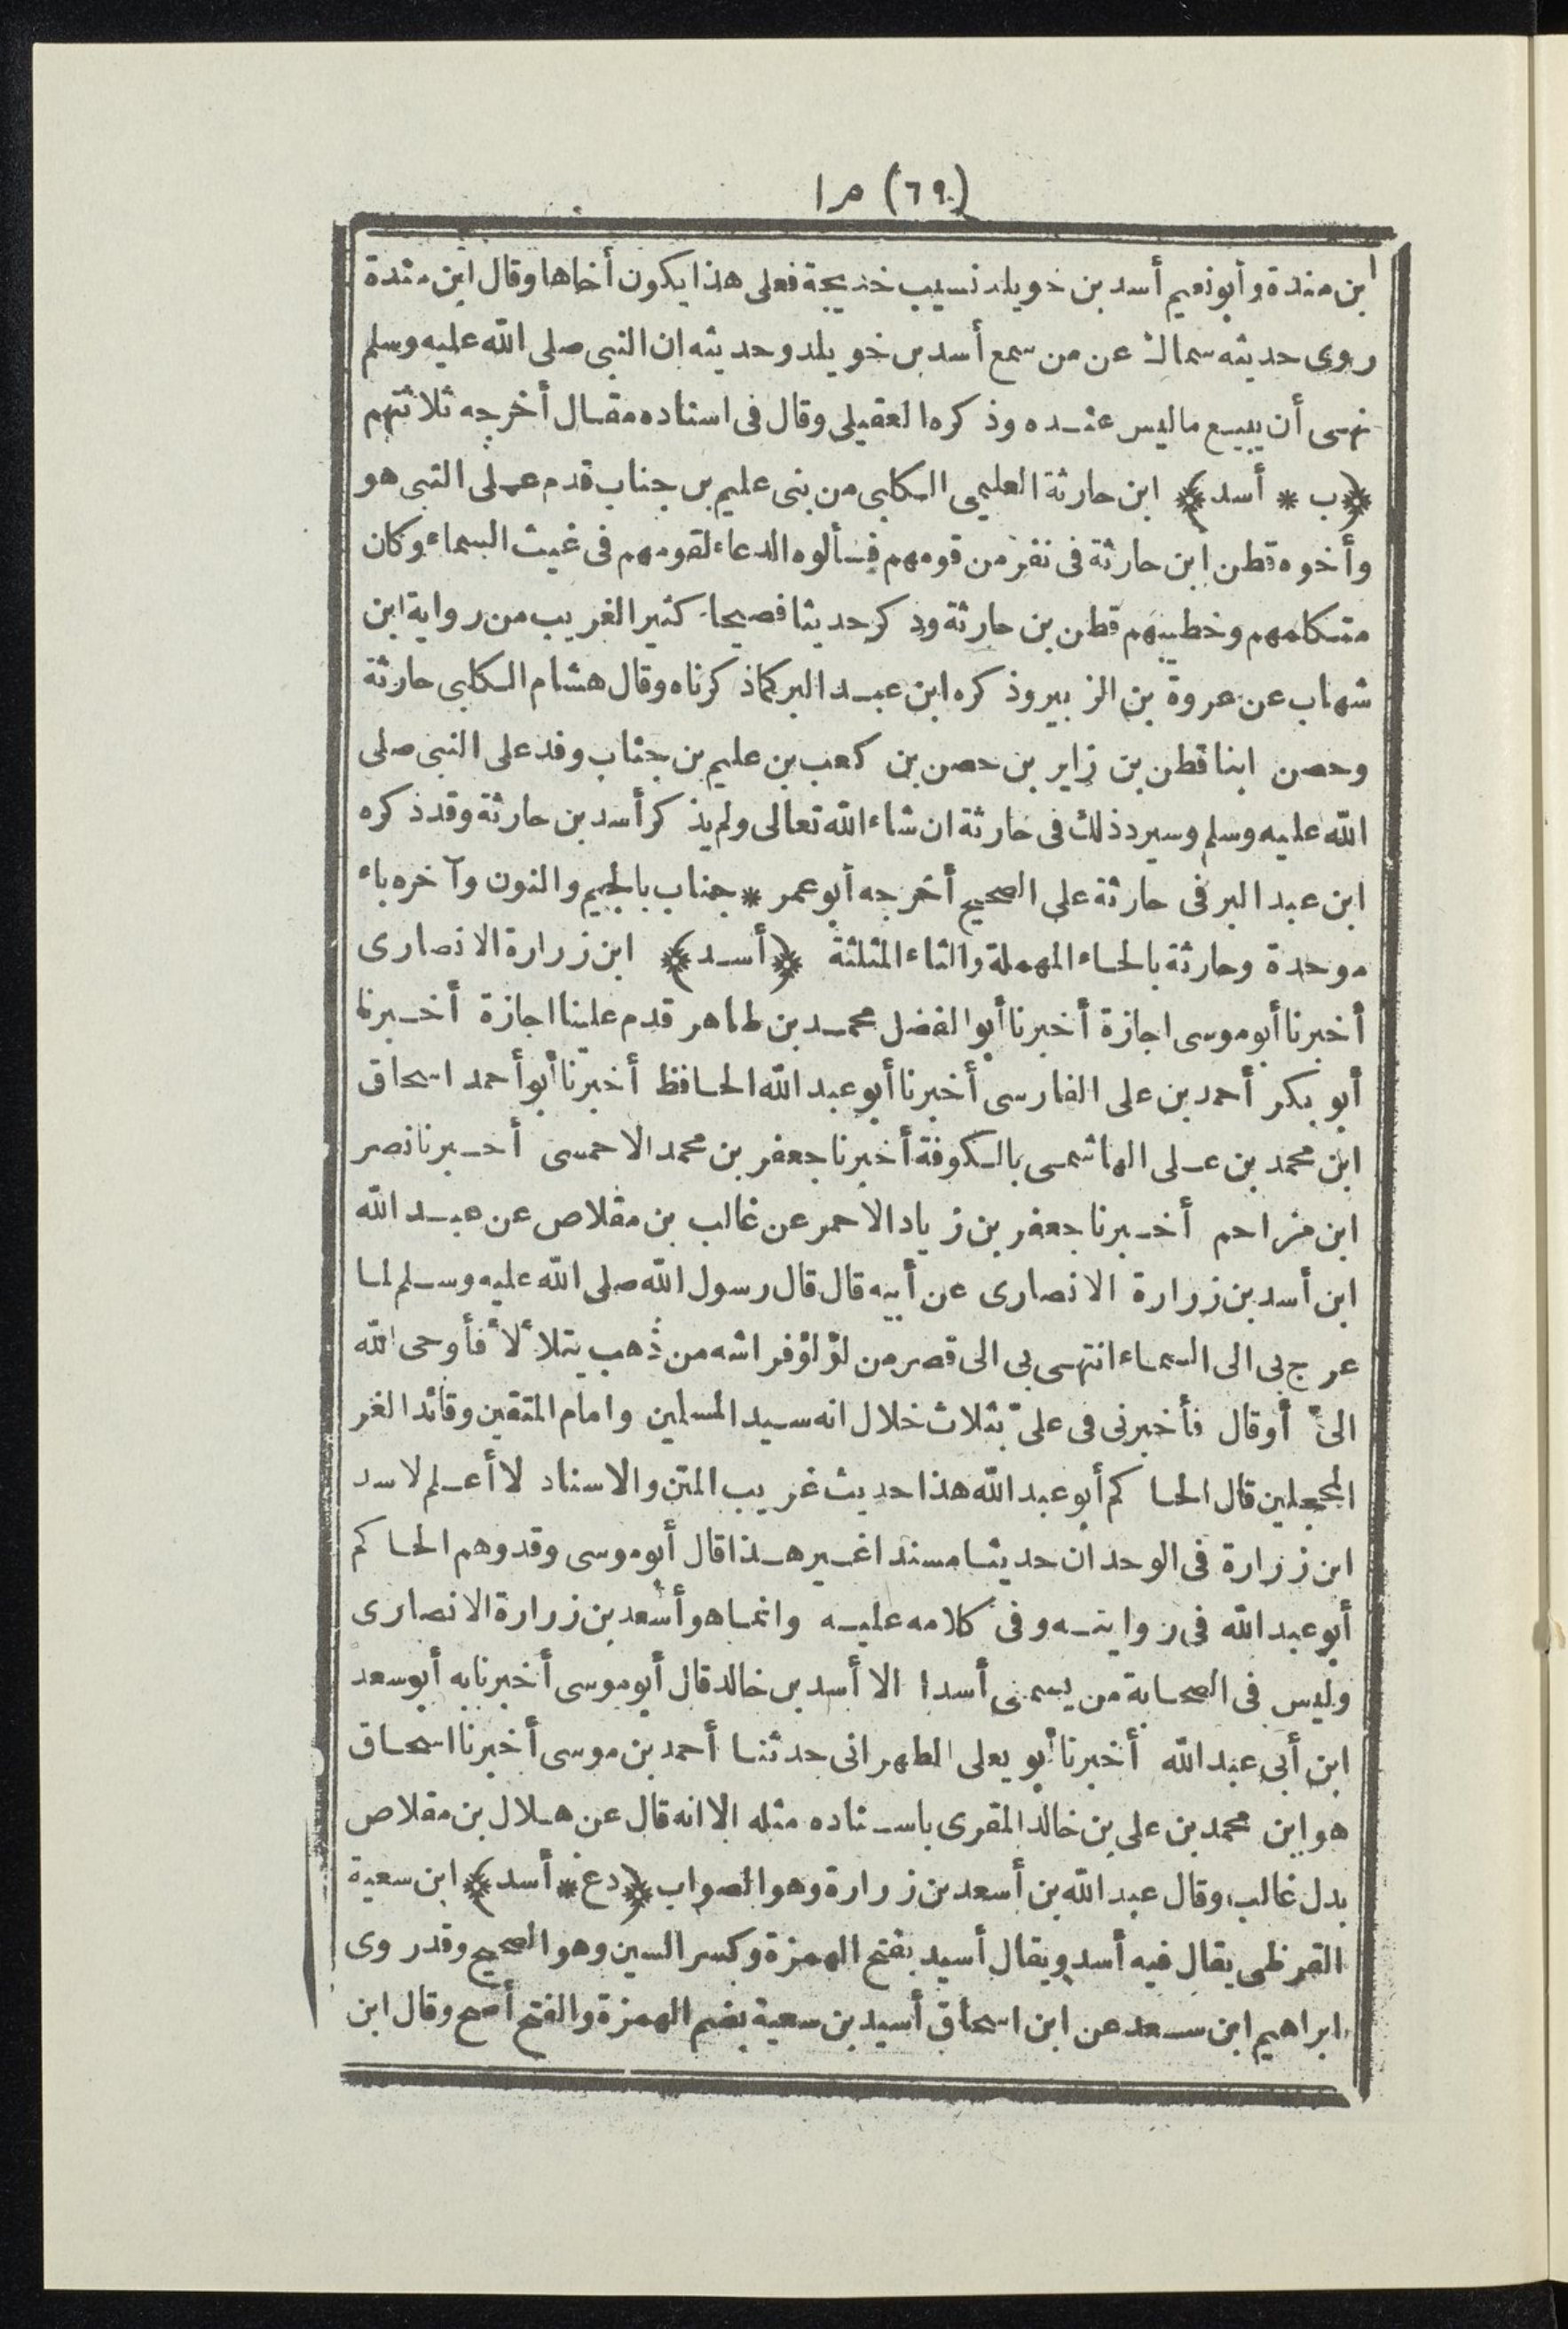 (٦٩) م ا
ابن مندة وأبو نعيم أسد بن خويلد نسيب خديجة فعلى هذا يكون أخاها وقال ابن مندة
روى حديثه سماك عن من سمع أسد بن خويلد وحديثه ان النبى صلى الله عليه وسلم
نهى أن يبيع ما ليس عنده وذكره العقيلى وقال فى اسناده مقال أخرجه ثلاثتهم
﴿ب * أسد﴾ ابن حارثة العليمى الكلبى من بنى عليم بن جناب قدم على النبى هو
وأخوه قطن ابن حارثة فى نفر من قومهم فسألوه الدعاء لقومهم فى غيث السماء وكان
متكلمهم وخطيبهم قطن بن حارثة وذكر حديثا فصيحا كثير الغريب من رواية ابن
شهاب عن عروة بن الزبير وذكره ابن عبد البر كما ذكرناه وقال هشام الكلبى حارثة
وحصن ابنا قطن بن زاير بن حصن بن كعب بن عليم بن جناب وفد على النبى صلى
الله عليه وسلم وسيرد ذلك فى حارثة ان شاء الله تعالى ولم يذكر أسد بن حارثة وقد ذكره
ابن عبد البر فى حارثة على الصحيح أخرجه أبو عمر * جناب بالجيم والنون وآخره باء
موحدة وحارثة بالحاء المهملة والثاء المثلثة ﴿أسد﴾ ابن زرارة الانصارى
أخبرنا أبو موسى اجازة أخبرنا أبو الفضل محمد بن طاهر قدم علينا اجازة أخبرنا
أبو بكر أحمد بن على الفارسى أخبرنا أبو عبد الله الحافظ أخبرنا أبو أحمد اسحاق
ابن محمد بن على الهاشمى بالكوفة أخبرنا جعفر بن محمد الاحمسى أخبرنا نصر
ابن مزاحم أخبرنا جعفر بن زياد الاحمر عن غالب بن مقلاص عن عبد الله
ابن أسد بن زرارة الانصارى عن أبيه قال قال رسول الله صلى الله عليه وسلم لما
عرج بى الى السماء انتهى بى الى قصر من لؤلؤ فراشه من ذهب يتلألأ فأوحى الله
الىّ أو قال فأخبرنى فى علىّ بثلاث خلال انه سيد المسلمين وامام المتقين وقائد الغر
المحجلين قال الحاكم أبو عبد الله هذا حديث غريب المتن والاسناد لا أعلم لاسد
ابن زرارة فى الوحدان حديثا مسندا غير هذا قال أبو موسى وقد وهم الحاكم
أبو عبد الله فى روايته وفى كلامه عليه وانما هو أسعد بن زرارة الانصارى
وليس فى الصحابة من يسمى أسدا الا أسد بن خالد قال أبو موسى أخبرنا به أبو سعد
ابن أبى عبد الله أخبرنا أبو يعلى الطهرانى حدثنا أحمد بن موسى أخبرنا اسحاق
هو ابن محمد بن على بن خالد المقرى باسناده مثله الا انه قال عن هلال بن مقلاص
بدل غالب وقال عبد الله بن أسعد بن زرارة وهو الصواب ﴿دع * أسد﴾ ابن سعية
القرظى يقال فيه أسد ويقال أسيد بفتح الهمزة وكسر السين وهو الصحيح وقد روى
ابراهيم ابن سعد عن ابن اسحاق أسيد بن سعية بضم الهمزة والفتح أصح وقال ابن